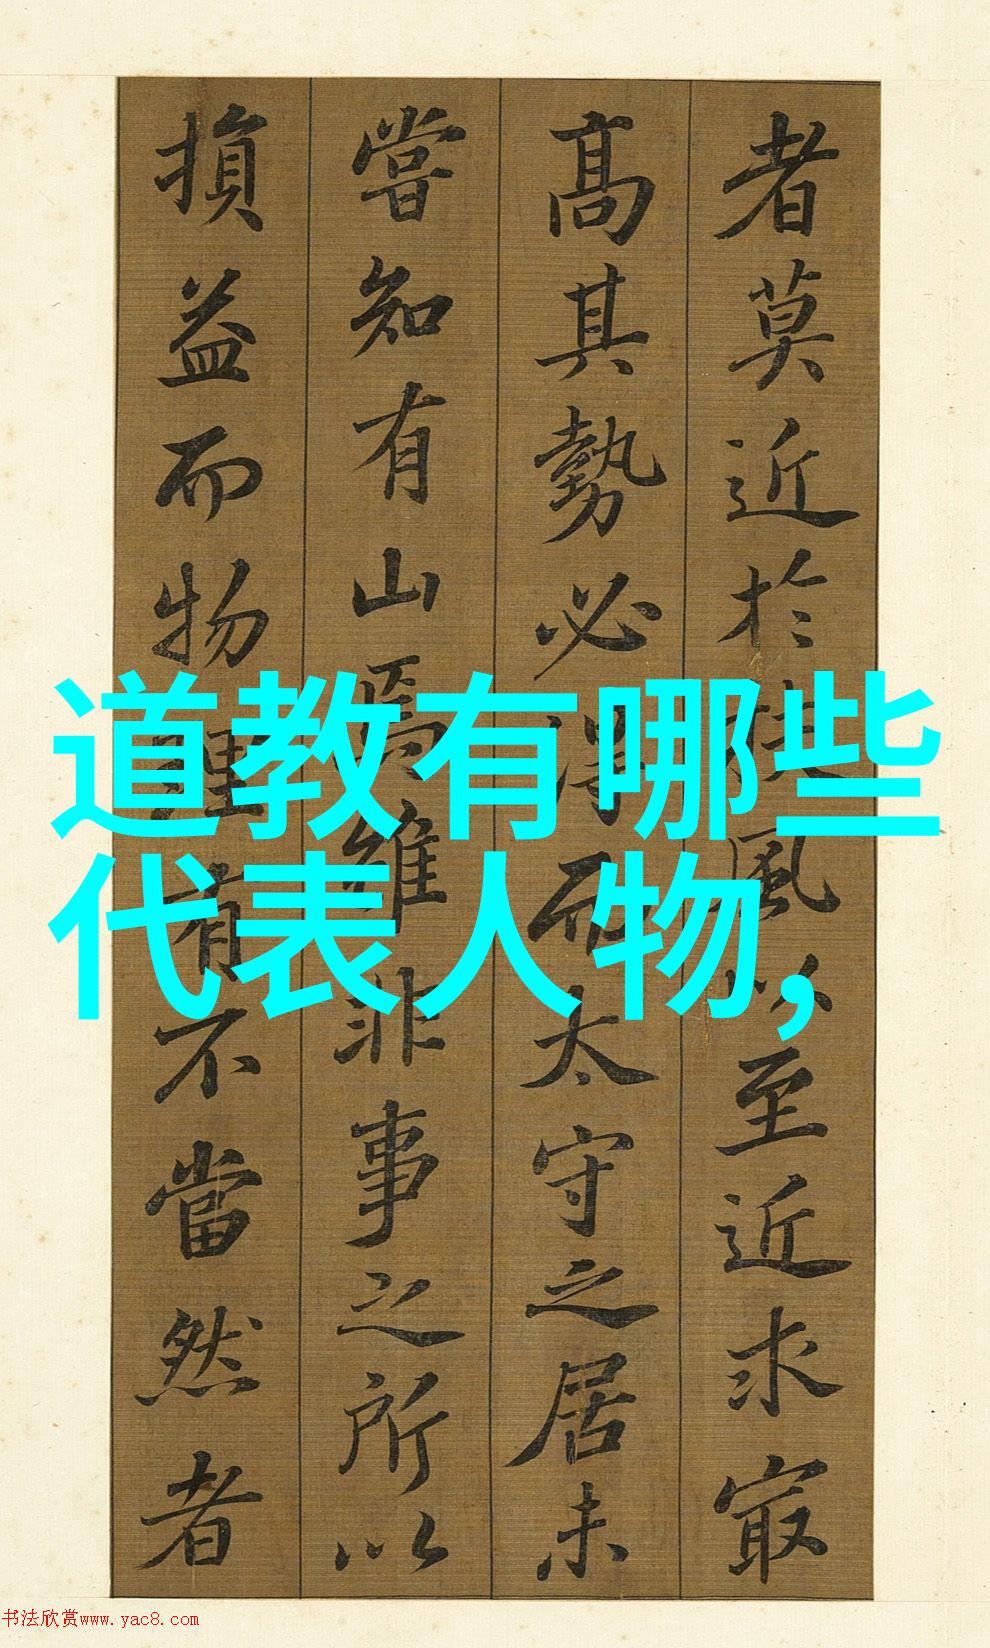 者莫近於扶風以至近求冣
高其勢必得而太守之居未
嘗知有山焉雖非事之所以
損益而物理有不當然者
道教有哪些
代表人物,
书法欣赏www.yac8.com